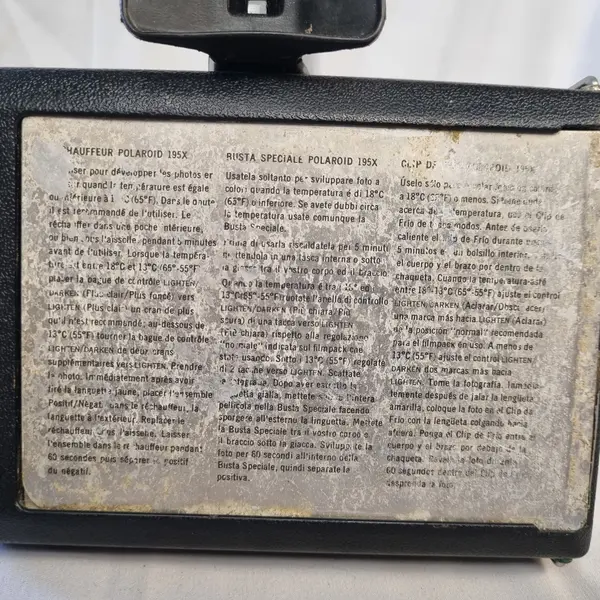 CHAUFFEUR POLAROID 195X
pour développer les photos en
quand la température est égale
ou inférieure à (65°F). Dans le doute
il est recommandé de l'utiliser. Le
réchauffer dans une poche intérieure,
ou bien sous l'aisselle, pendant 5 minutes
avant de l'utiliser. Lorsque la tempéra-
ture est entre 18°C et 13°C (65°-55°F)
placer la bague de contrôle LIGHTEN/
DARKEN (Plus clair/Plus foncé) vers
LIGHTEN (Plus clair) un cran de plus
qu'il n'est recommandé; au-dessous de
13°C (55°F) tourner la bague de contrôle
LIGHTEN/DARKEN de deux crans
supplémentaires vers LIGHTEN. Prendre
la photo. Immédiatement après avoir
tiré la languette jaune, placer l'ensemble
Positif/Négatif dans le réchauffeur, la
languette à l'extérieur. Replacer le
réchauffeur sous l'aisselle. Laisser
l'ensemble dans le réchauffeur pendant
60 secondes puis séparer le positif
du négatif.
BUSTA SPECIALE POLAROID 195X
Usatela soltanto per sviluppare foto a
colori quando la temperatura è di 18°C
(65°F) o inferiore. Se avete dubbi circa
la temperatura usate comunque la
Busta Speciale.
Prima di usarla riscaldatela per 5 minuti
mettendola in una tasca interna o sotto
la giacca tra il vostro corpo ed il braccio.
Quando la temperatura è tra i 18° ed
i 13°C (65°-55°F) ruotate l'anello di controllo
LIGHTEN/DARKEN (Più chiara/Più
scura) di una tacca verso LIGHTEN
(Più chiara) rispetto alla regolazione
"normale" indicata sul filmpack che
state usando. Sotto i 13°C (55°F) regolate
di 2 tacche verso LIGHTEN. Scattate
la fotografia. Dopo aver estratto la
linguetta gialla, mettete subito l'intera
pellicola nella Busta Speciale facendo
sporgere all'esterno la linguetta. Mettete
la Busta Speciale tra il vostro corpo e
il braccio sotto la giacca. Sviluppate la
foto per 60 secondi all'interno della
Busta Speciale, quindi separate la
positiva.
CLIP DE 195X
Úselo sólo para
a 18°C (65°F) o menos. Si tiene dudas
acerca de la temperatura, use el Clip de
Frío de todos modos. Antes de usarlo
caliente el Clip de Frío durante
5 minutos en un bolsillo interior,
el cuerpo y el brazo por dentro de la
chaqueta. Cuando la temperatura esté
entre 18°-13°C (65°-55°F) ajuste el control
LIGHTEN/DARKEN (Aclarar/Obscurecer)
una marca más hacia LIGHTEN (Aclarar)
de la posición "normal" recomendada
para el filmpack en uso. A menos de
13°C (55°F) ajuste el control LIGHTEN/
DARKEN dos marcas más hacia
LIGHTEN. Tome la fotografía. Inmedia-
tamente después de jalar la lengüeta
amarilla, coloque la foto en el Clip de
Frío con la lengüeta colgando hacia
afuera. Ponga el Clip de Frío entre el
cuerpo y el brazo por debajo de la
chaqueta. Revele la foto durante
60 segundos dentro del Clip de Frío,
desprenda la foto.